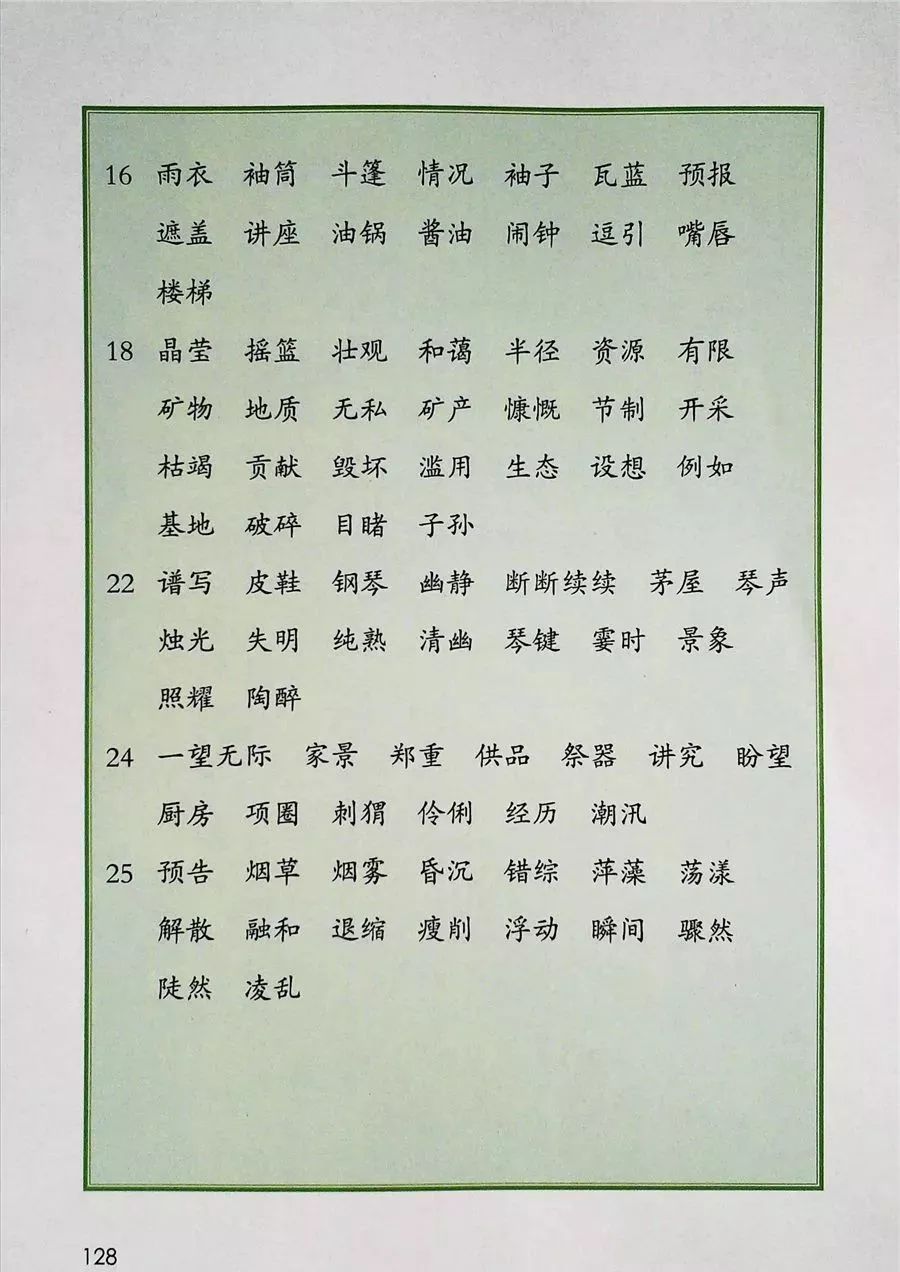 16 雨衣 袖筒 斗篷 情况 袖子 瓦蓝 预报
遮盖 讲座 油锅 酱油 闹钟 逗引 嘴唇
楼梯
18 晶莹 摇篮 壮观 和蔼 半径 资源 有限
矿物 地质 无私 矿产 慷慨 节制 开采
枯竭 贡献 毁坏 滥用 生态 设想 例如
基地 破碎 目睹 子孙
22 谱写 皮鞋 钢琴 幽静 断断续续 茅屋 琴声
烛光 失明 纯熟 清幽 琴键 霎时 景象
照耀 陶醉
24 一望无际 家景 郑重 供品 祭器 讲究 盼望
厨房 项圈 刺猬 伶俐 经历 潮汛
25 预告 烟草 烟雾 昏沉 错综 萍藻 荡漾
解散 融和 退缩 瘦削 浮动 瞬间 骤然
陡然 凌乱
128